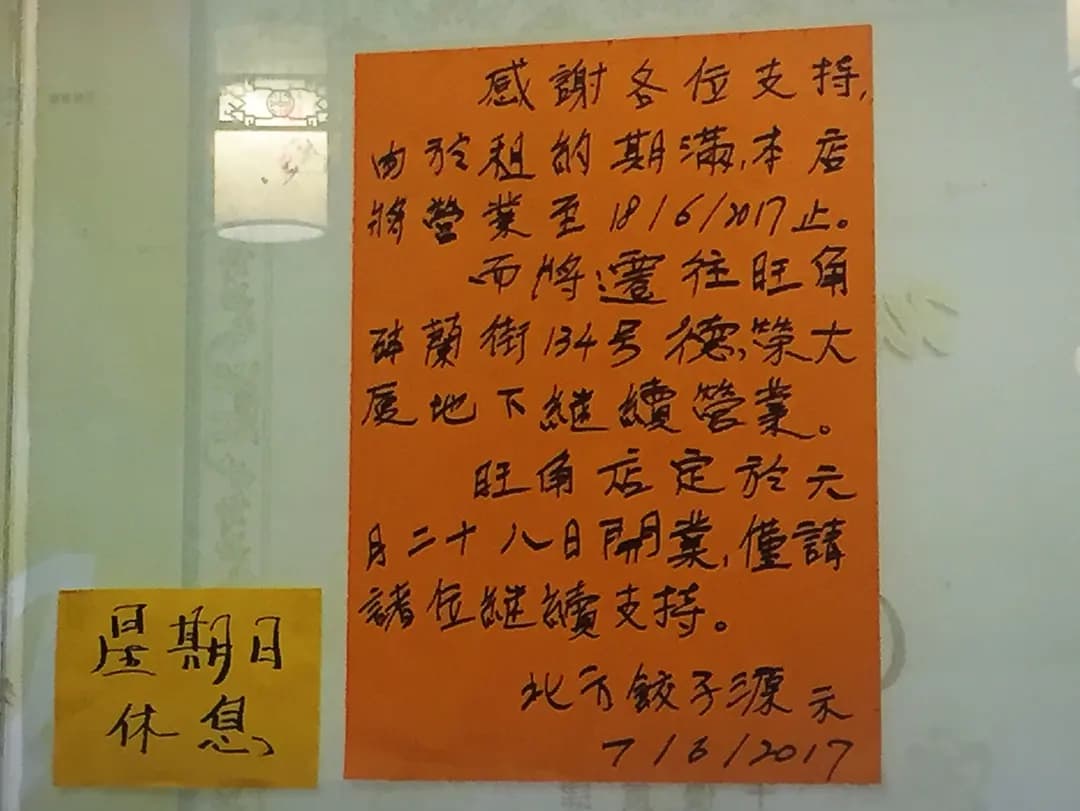 感謝各位支持,
由於租約期滿,本店
將營業至18/6/2017止。
而將遷往旺角
砵蘭街134号德榮大
厦地下继續營業。
旺角店定於六
月二十八日開業,僅請
諸位继續支持。
北方餃子源示
7/6/2017
星期日
休息